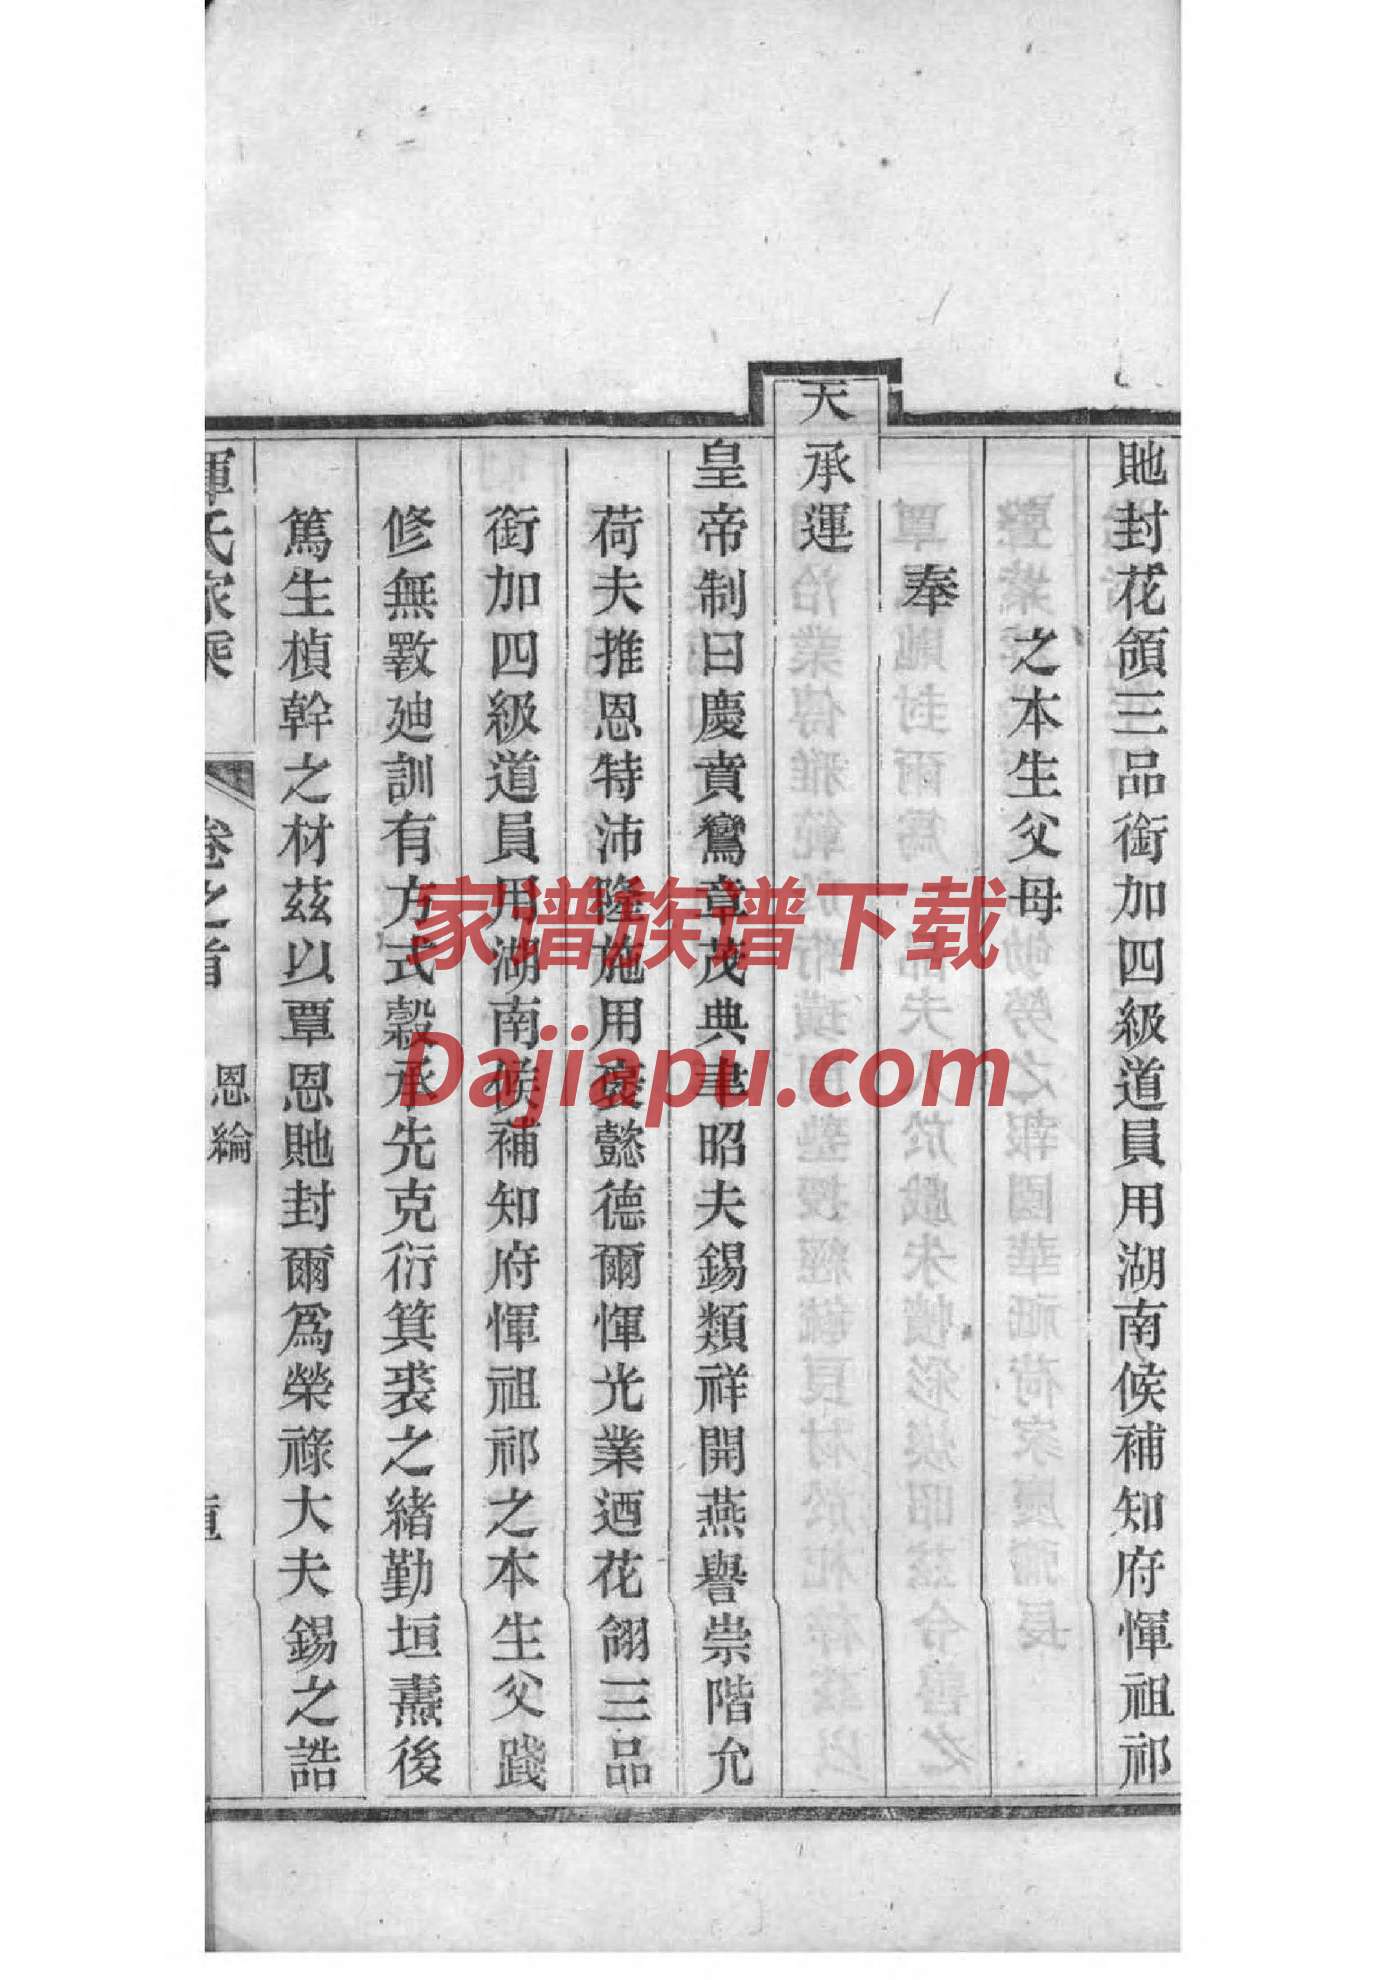 貤封花領三品銜加四級道員用湖南候補知府惲祖祁
之本生父母
奉
天承運
皇帝制曰慶賁鸞章茂典聿昭夫錫類祥開燕譽崇階允
荷夫推恩特沛隆施用裦懿德爾惲光業迺花翎三品
銜加四級道員用湖南候補知府惲祖祁之本生父踐
修無斁廸訓有方式穀承先克衍箕裘之緒勤垣燾後
篤生楨幹之材茲以覃恩貤封爾爲榮祿大夫錫之誥
惲氏家乘
卷之首
恩綸
家谱族谱下载
Dajiapu.com